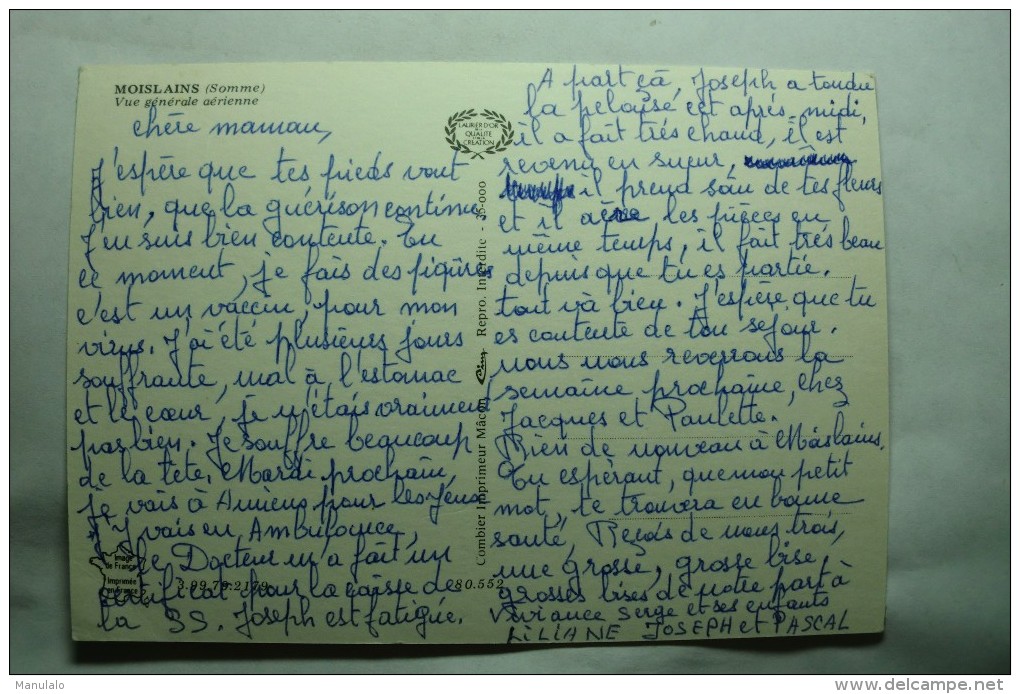 MOISLAINS (Somme)
Vue générale aérienne
chère maman,
J'espère que tes pieds vont
bien, que la guérison continue
J'en suis bien contente. En
ce moment, je fais des piqûres
c'est un vaccin, pour mon
virus. J'ai été plusieurs jours
souffrante, mal à l'estomac
et le cœur, je n'étais vraiment
pas bien. Je souffre beaucoup
de la tête, Mardi prochain,
je vais à Amiens pour les yeux
J'y vais en Ambulance,
le Docteur m'a fait un
certificat pour la caisse de
la SS. Joseph est fatigué.
LAURIER D'OR
DE LA
QUALITÉ
CRÉATION
Combier Imprimeur Mâcon Cim Repro. Interdite - 35-000
Image
de France
Imprimée
en France
3.99.76.2179
280.552
A part çà, Joseph a tondu
la pelouse cet après-midi,
il a fait très chaud, il est
revenu en sueur,
il prend soin de tes fleurs
et il aère les pièces en
même temps, il fait très beau
depuis que tu es partie.
tout và bien. J'espère que tu
es contente de ton séjour.
nous nous reverrons la
semaine prochaine, chez
Jacques et Paulette.
Rien de nouveau à Moislains.
En espérant, que mon petit
mot, te trouvera en bonne
santé, Reçois de nous trois,
une grosse, grosse bise,
grosses bises de notre part à
Viviance Serge et ses enfants
LILIANE JOSEPH et PASCAL
Manulalo